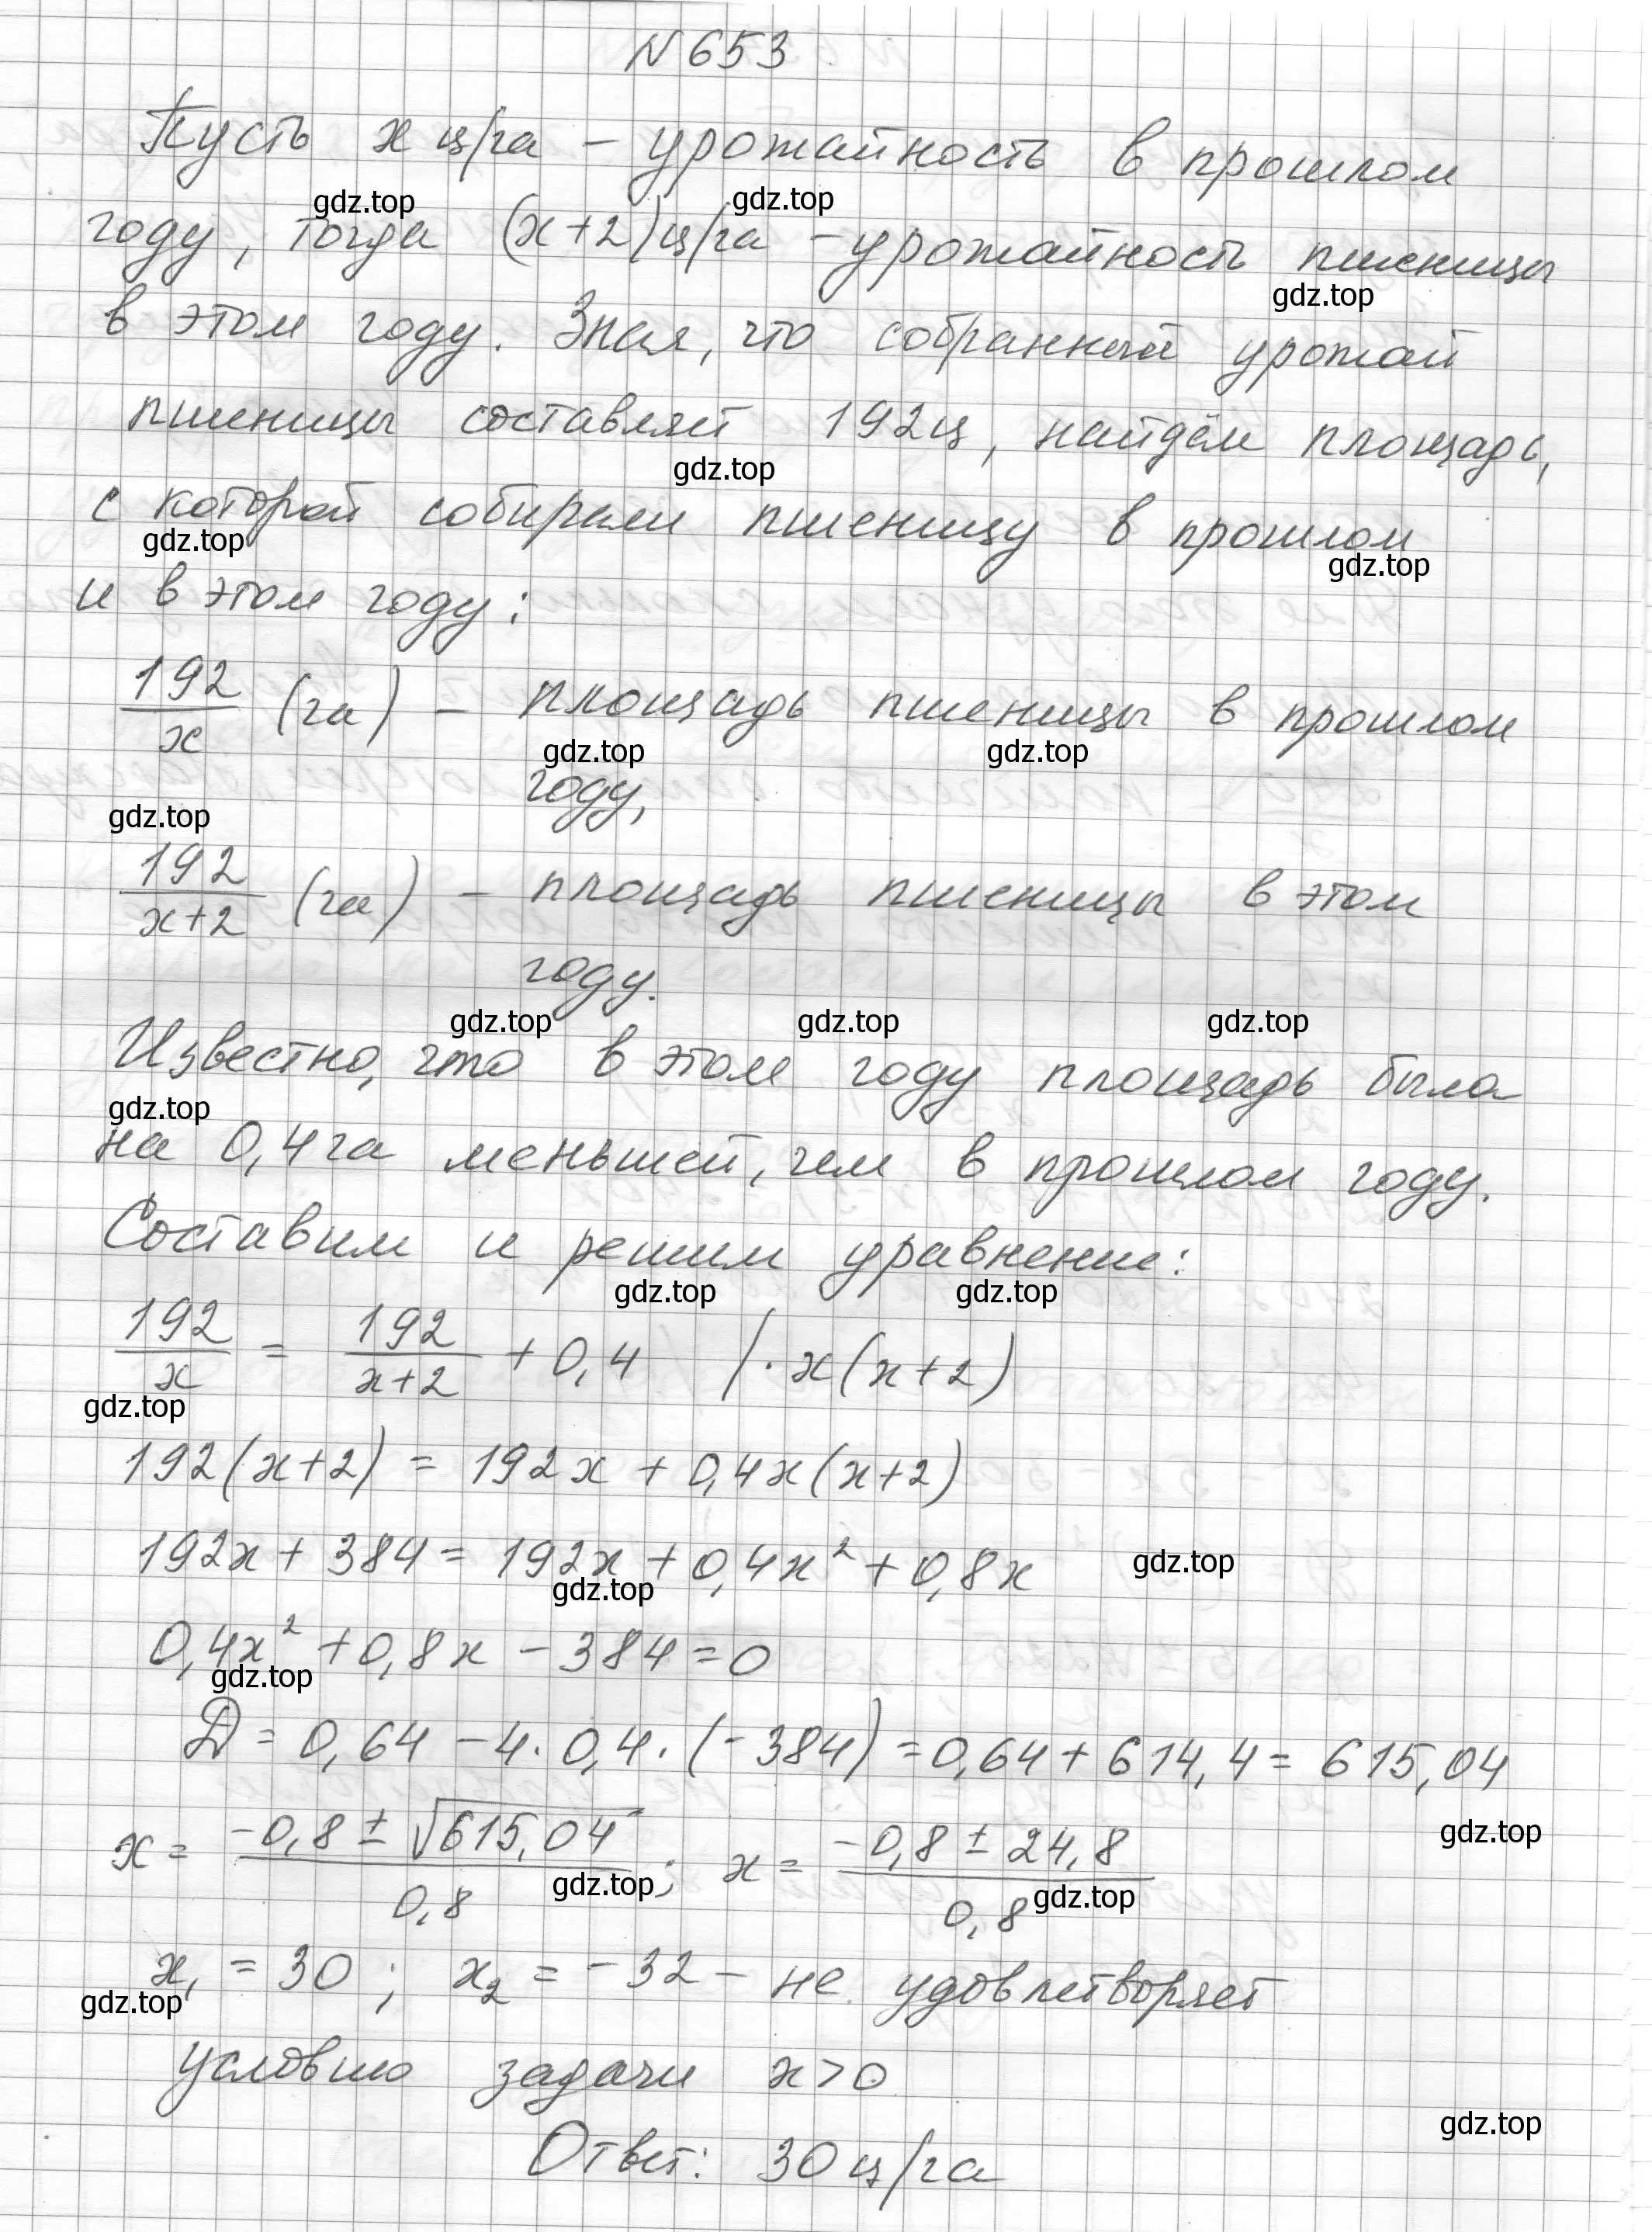 N 653
Пусть x ц/га – урожайность в прошлом
gdz.top gdz.top
году, тогда (x+2) ц/га – урожайность пшеницы
gdz.top
в этом году. Зная, что собранный урожай
пшеницы составляет 192ц, найдём площадь,
gdz.top
с которой собирали пшеницу в прошлом
gdz.top gdz.top
и в этом году:
192/x (га) – площадь пшеницы в прошлом
gdz.top gdz.top
году,
gdz.top
192/(x+2) (га) – площадь пшеницы в этом
году.
gdz.top gdz.top gdz.top
Известно, что в этом году площадь была
gdz.top
на 0,4 га меньшей, чем в прошлом году.
Составим и решим уравнение:
gdz.top gdz.top
192/x = 192/(x+2) + 0,4 | · x(x+2)
gdz.top
192(x+2) = 192x + 0,4x(x+2)
192x + 384 = 192x + 0,4x² + 0,8x
gdz.top gdz.top
0,4x² + 0,8x – 384 = 0
gdz.top
D = 0,64 – 4 · 0,4 · (-384) = 0,64 + 614,4 = 615,04
gdz.top
x = (-0,8 ± √615,04)/0,8 ; x = (-0,8 ± 24,8)/0,8
gdz.top gdz.top
x₁ = 30 ; x₂ = -32 – не удовлетворяет
gdz.top gdz.top
условию задачи x>0
gdz.top
Ответ: 30 ц/га